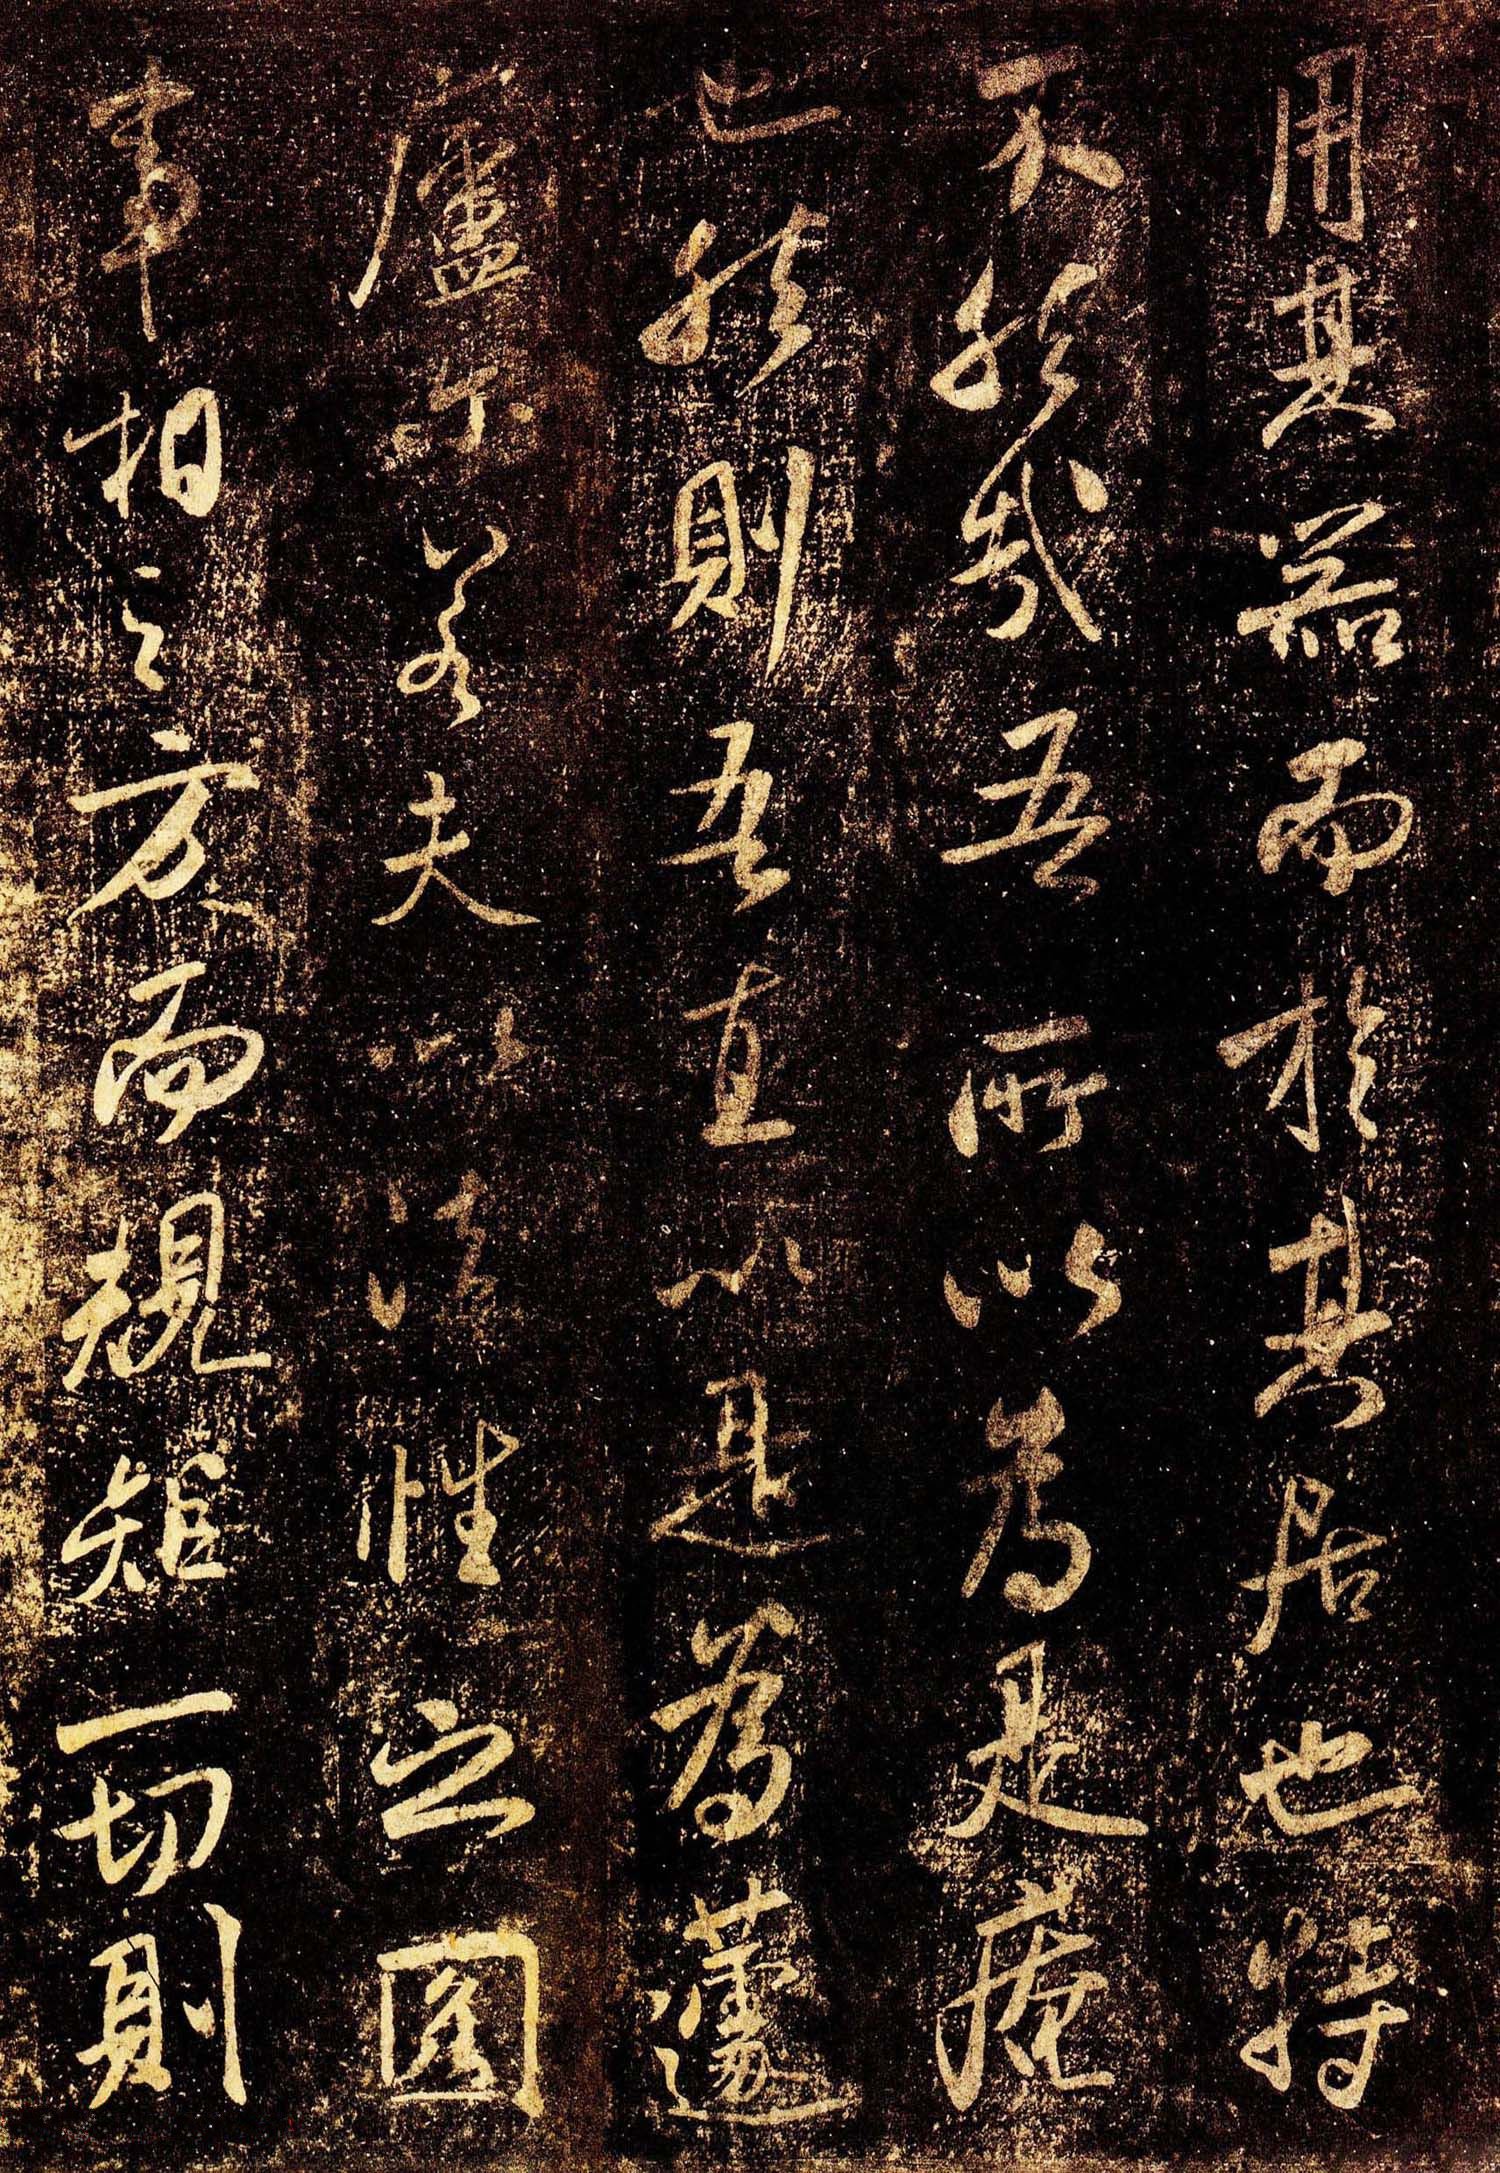 用其器而於其居也特
不然哉吾所以為是庵
也然則吾直以是為蘧
廬尔若夫以法性之圓
事相之方而規矩一切則